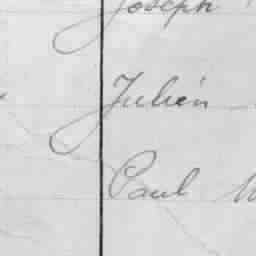 Joseph
Julien
Paul